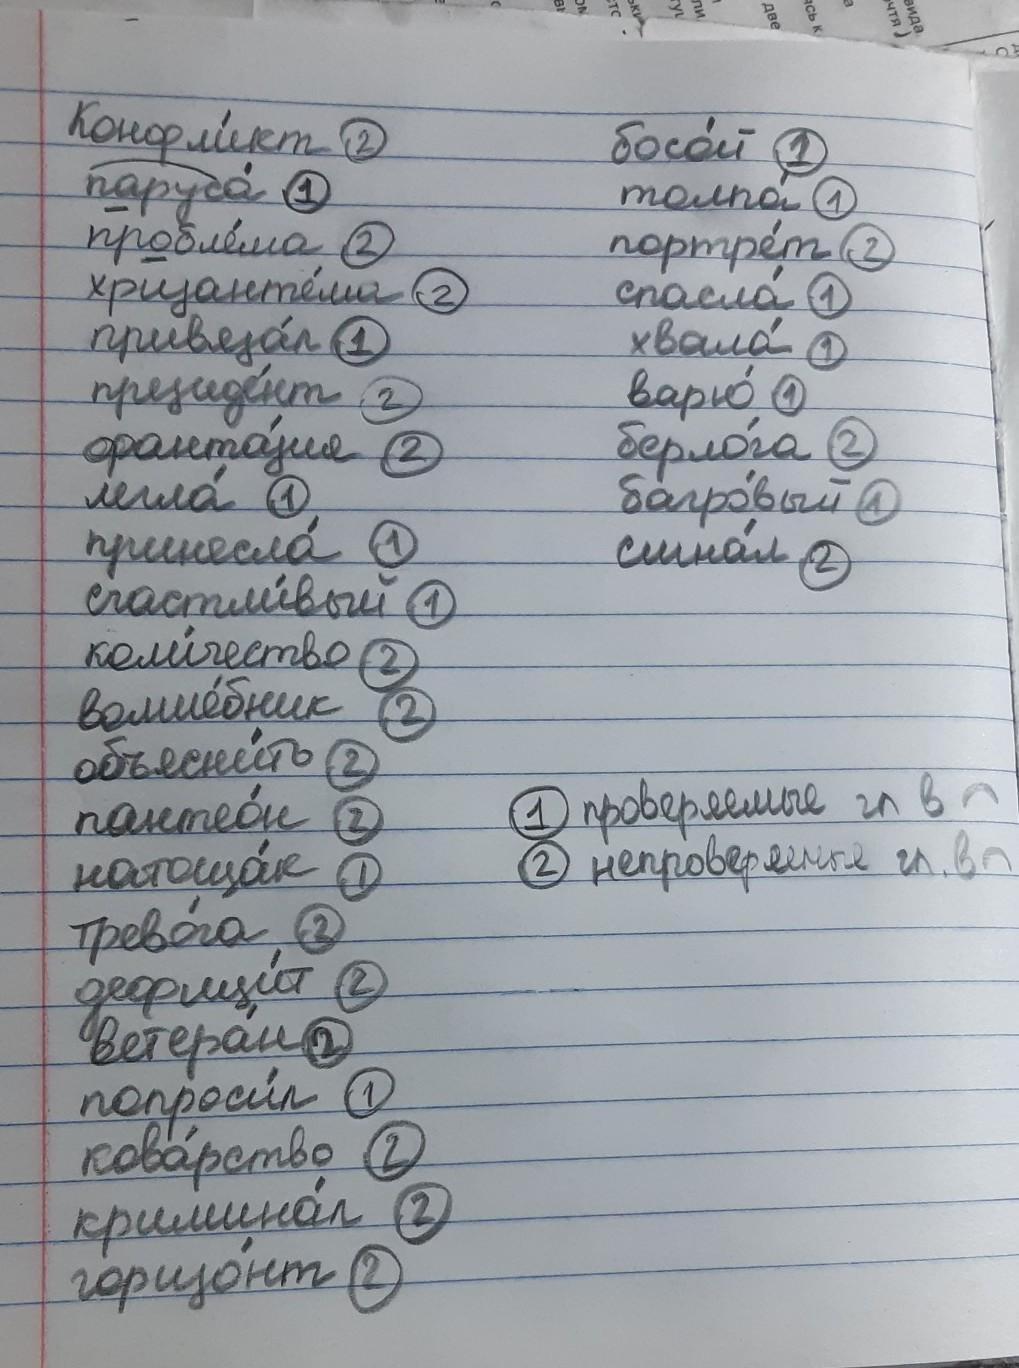 Конфли́кт ②
паруса́ ①
пробле́ма ②
хризанте́ма ②
привяза́л ①
президе́нт ②
фанта́зия ②
легла́ ①
принесла́ ①
счастли́вый ①
коли́чество ②
волше́бник ②
объясни́ть ②
пантео́н ②
натоща́к ①
трево́га ②
дефици́т ②
ветера́н ②
попроси́л ①
кова́рство ②
кримина́л ②
горизо́нт ②
босо́й ①
толпа́ ①
портре́т ②
спасла́ ①
хвала́ ①
варю́ ①
берло́га ②
багро́вый ①
сигна́л ②
① проверяемые гл в
② непроверяемые гл. в